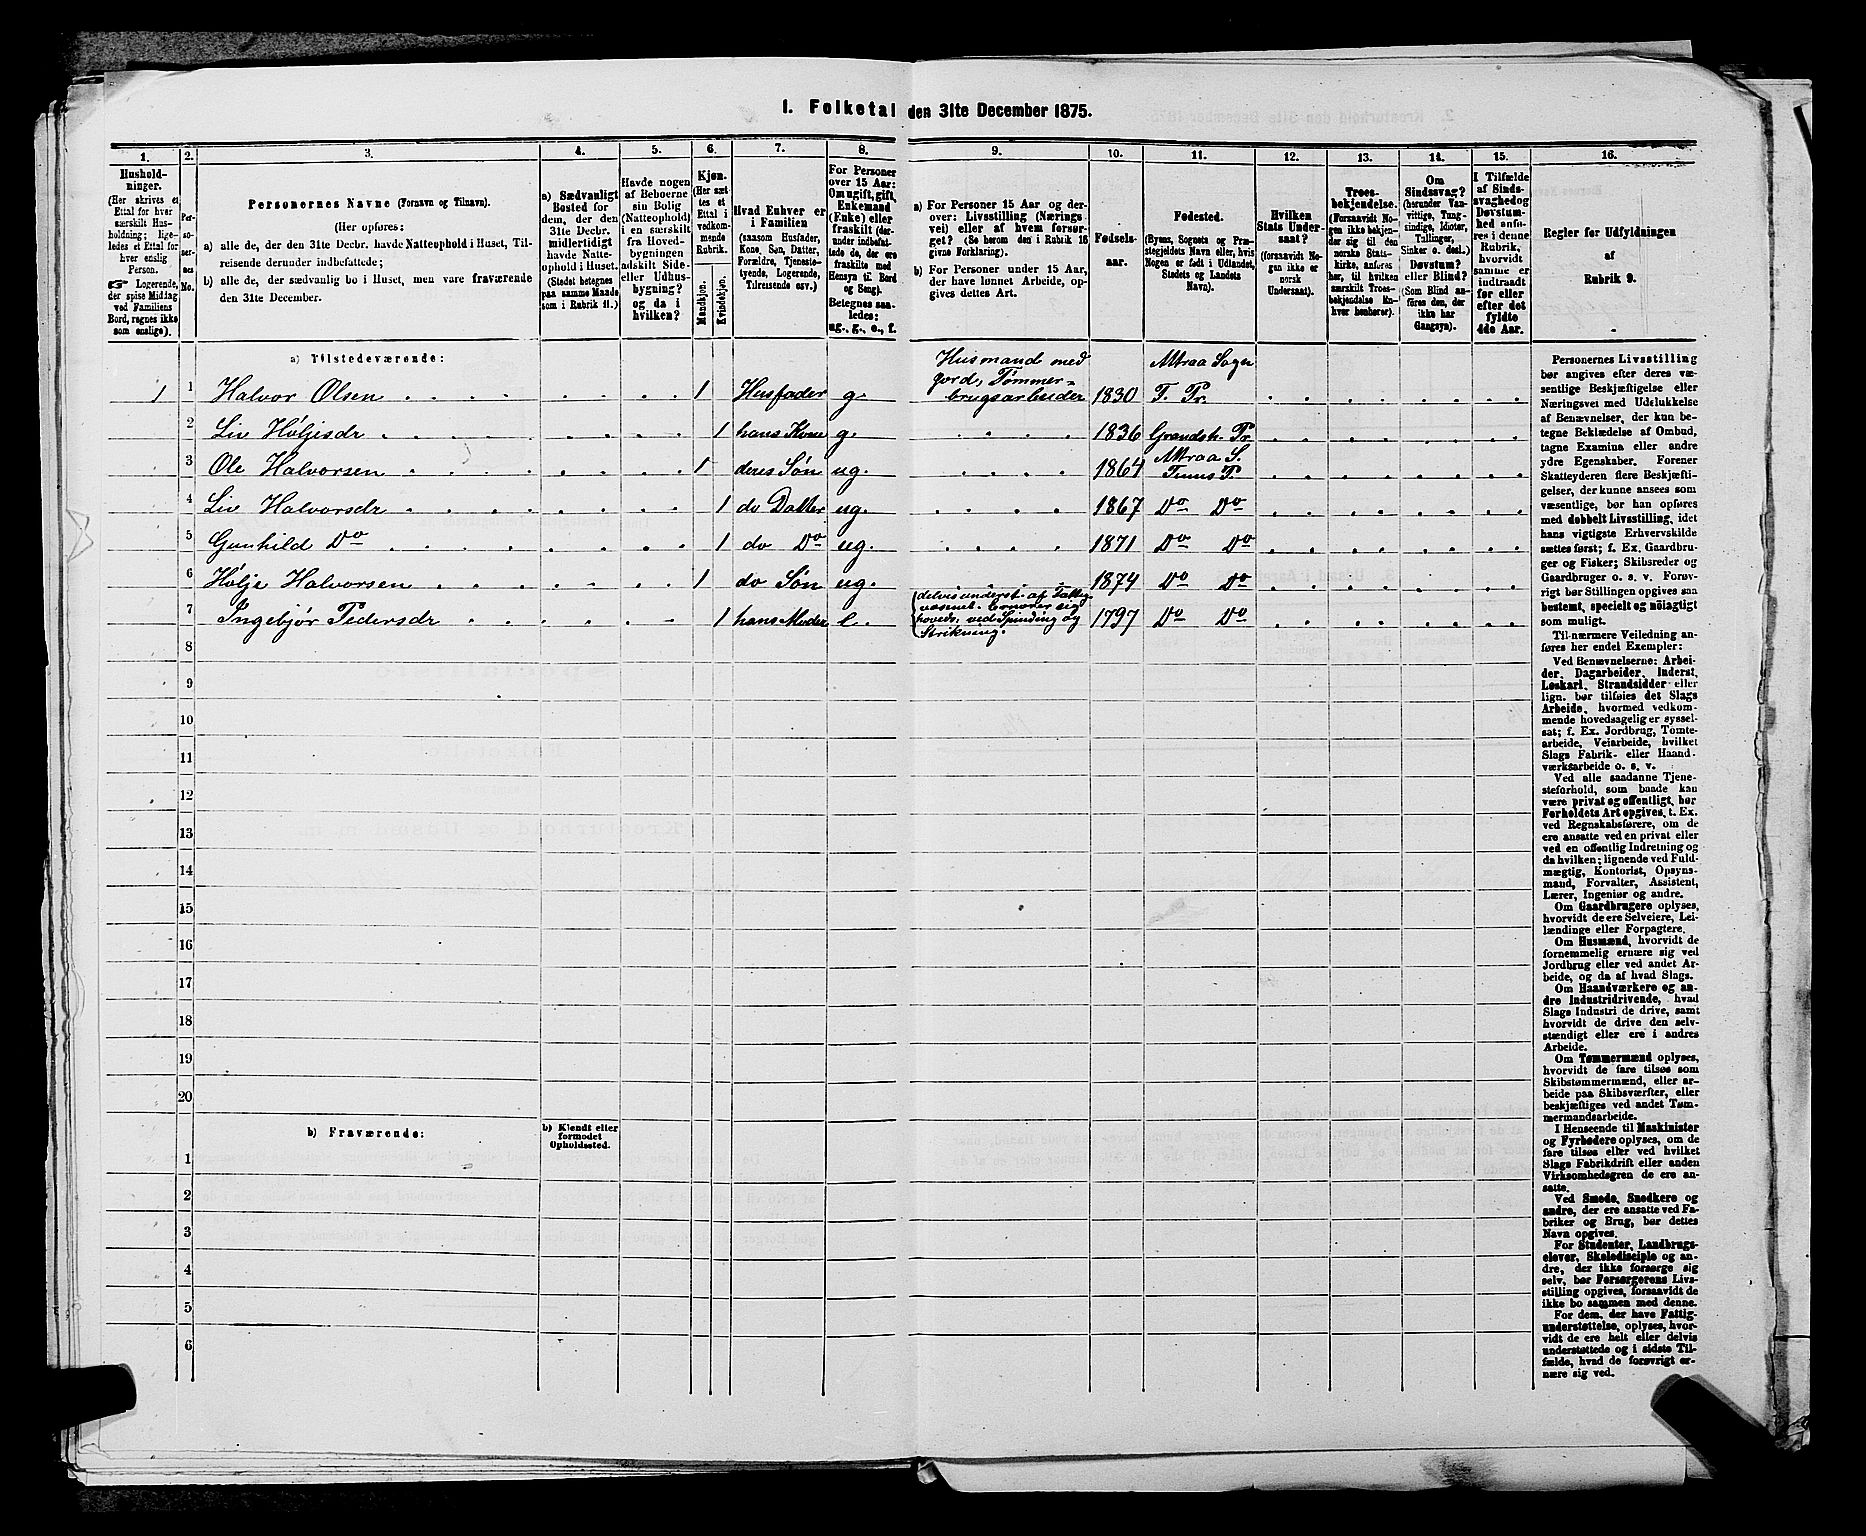 I. Folketal den 31te December 1875.
1. 2. 3. 4. 5. 6. 7. 8. 9. 10. 11. 12. 13. 14. 15. 16.
Hushold-
ninger.
(Her skrives et
Ettal for hver
særskilt Hus-
holdning; lige-
ledes et Ettal for
hver enslig
Person.
☞ Logerende,
der spise Middag
ved Familiens
Bord, regnes ikke
som enslige).
Per-
so-
ner-
nes
No.
Personernes Navne (Fornavn og Tilnavn).
(Her opføres:
a) alle de, der den 31te Decbr. havde Natteophold i Huset, Til-
reisende derunder indbefattede;
b) alle de, der sædvanlig bo i Huset, men vare fraværende
den 31te December.
a) Sædvanligt
Bosted for
dem, der den
31te Decbr.
midlertidigt
havde Natte-
ophold i Huset.
(Stedet betegnes
paa samme Maade
som i Rubrik 11.)
Havde nogen
af Beboerne
sin Bolig
(Natteophold)
i en særskilt
fra Hoved-
bygningen
adskilt Side-
eller Udhus-
bygning?
og da i
hvilken?
Kjøn.
(Her sæt-
tes et
Ettal i
vedkom-
mende
Rubrik.
Mandkjøn.
Kvindekjøn.
Hvad Enhver er
i Familien
(saasom Husfader,
Kone, Søn, Datter,
Forældre, Tjeneste-
tyende, Logerende,
Tilreisende osv.)
For Personer
over 15 Aar:
Om ugift, gift,
Enkemand
(Enke) eller
fraskilt (der-
under indbefat-
tede de, der ere
fraskilte med
Hensyn til Bord
og Seng).
Betegnes saa-
ledes:
ug., g., e., f.
a) For Personer 15 Aar og der-
over: Livsstilling (Nærings-
vei) eller af hvem forsør-
get? (Se herom den i Rubrik 16
givne Forklaring).
b) For Personer under 15 Aar,
der have lønnet Arbeide, op-
gives dettes Art.
Fødsels-
aar.
Fødested.
(Byens, Sognets og Præ-
stegjeldets Navn eller, hvis
Nogen er født i Udlandet,
Stedets og Landets
Navn).
Hvilken
Stats Under-
saat?
(forsaavidt No-
gen ikke er
norsk
Undersaat).
Troes-
bekjendelse.
(Forsaavidt No-
gen ikke bekjen-
der sig til den
norske Stats-
kirke, anføres
her, til hvilken
særskilt Troes-
bekjendelse En-
hver henhører).
Om
Sindssvag?
(herunder Van-
vittige, Tung-
sindige, Idioter,
Tullinger,
Sinker o. desl.)
Døvstum?
eller Blind?
(Som Blind an-
føres den, der
ikke har
Gangsyn).
I Tilfælde
af Sinds-
svaghed og
Døvstum-
hed anfø-
res i denne
Rubrik,
hvorvidt
samme er
indtraadt
før eller
efter det
fyldte
4de Aar.
Regler for Udfyldningen
af
Rubrik 9.
a) Tilstedeværende:
1 1 Halvor Olsen 1 Husfader g. Husmand med Jord, Tømmer-brugsarbeider 1830 Attraa Sogn T. Pr.
2 Liv Høljesdr 1 hans Kone g. 1836 Gransh. Pr.
3 Ole Halvorsen 1 deres Søn ug. 1864 Attraa S. Tinns P.
4 Liv Halvorsdr 1 do Datter ug. 1867 Do Do
5 Gunhild Do 1 do Do ug. 1871 Do Do
6 Hølje Halvorsen 1 do Søn ug. 1874 Do Do
7 Ingebjør Pedersdr 1 hans Moder e. delvis underst. af Fattigvæsnet. Ernærer sig hoveds. ved Spinding og Strikning. 1797 Do Do
8
9
10
11
12
13
14
15
16
17
18
19
20
b) Fraværende:
b) Kjendt eller
formodet
Opholdssted.
1
2
3
4
5
6
Personernes Livsstilling
bør angives efter deres væ-
sentlige Beskjæftigelse eller
Næringsvei med Udelukkelse
af Benævnelser, der kun be-
tegne Beklædelse af Ombud,
tagne Examina eller andre
ydre Egenskaber. Forener
Skatteyderen flere Beskjæfti-
gelser, der kunne ansees som
væsentlige, bør han opføres
med dobbelt Livsstilling, idet
hans vigtigste Erhvervskilde
sættes først; f. Ex. Gaardbru-
ger og Fisker; Skibsreder og
Gaardbruger o. s. v. Forøv-
rigt bør Stillingen opgives saa
bestemt, specielt og nøiagtigt
som muligt.
Til nærmere Veiledning an-
føres her endel Exempler:
Ved Benævnelserne: Arbei-
der, Dagarbeider, Inderst,
Løskarl, Strandsidder eller
lign. bør tilføies det Slags
Arbeide, hvormed vedkom-
mende hovedsagelig er syssel-
sat; f. Ex. Jordbrug, Tomte-
arbeide, Veiarbeide, hvilket
Slags Fabrik- eller Haand-
værksarbeide o. s. v.
Ved alle saadanne Tjene-
steforhold, som baade kan
være privat og offentligt, bør
Forholdets Art opgives, t. Ex.
ved Regnskabsførere, om de
ere ansatte ved en privat eller
ved en offentlig Indretning og
da hvilken; lignende ved Fuld-
mægtig, Kontorist, Opsyns-
mand, Forvalter, Assistent,
Lærer, Ingeniør og andre.
Om Gaardbrugere oplyses,
hvorvidt de ere Selveiere, Lei-
lændinge eller Forpagtere.
Om Husmænd, hvorvidt de
fornemmelig ernære sig ved
Jordbrug eller ved andet Ar-
beide, og da af hvad Slags.
Om Haandværkere og an-
dre Industridrivende, hvad
Slags Industri de drive, samt
hvorvidt de drive den selv-
stændigt eller ere i andres
Arbeide.
Om Tømmermænd oplyses,
hvorvidt de fare tilsøs som
Skibstømmermænd, eller ar-
beide paa Skibsværfter, eller
beskjæftiges ved andet Tøm-
mermandsarbeide.
I Henseende til Maskinister
og Fyrbødere oplyses, om de
fare tilsøs eller ved hvilket
Slags Fabrikdrift eller anden
Virksomhedsgren de ere an-
satte.
Ved Smede, Snedkere og
andre, der ere ansatte ved Fa-
briker og Brug, bør dettes
Navn opgives.
For Studenter, Landbrugs-
elever, Skoledisciple og an-
dre, der ikke forsørge sig
selv, bør Forsørgerens Livs-
stilling opgives, forsaavidt de
ikke bo sammen med denne.
For dem, der have Fattig-
understøttelse, oplyses, hvor-
vidt de ere helt eller delvis
understøttede og i sidste Til-
fælde, hvad de forøvrigt er-
nære sig ved.